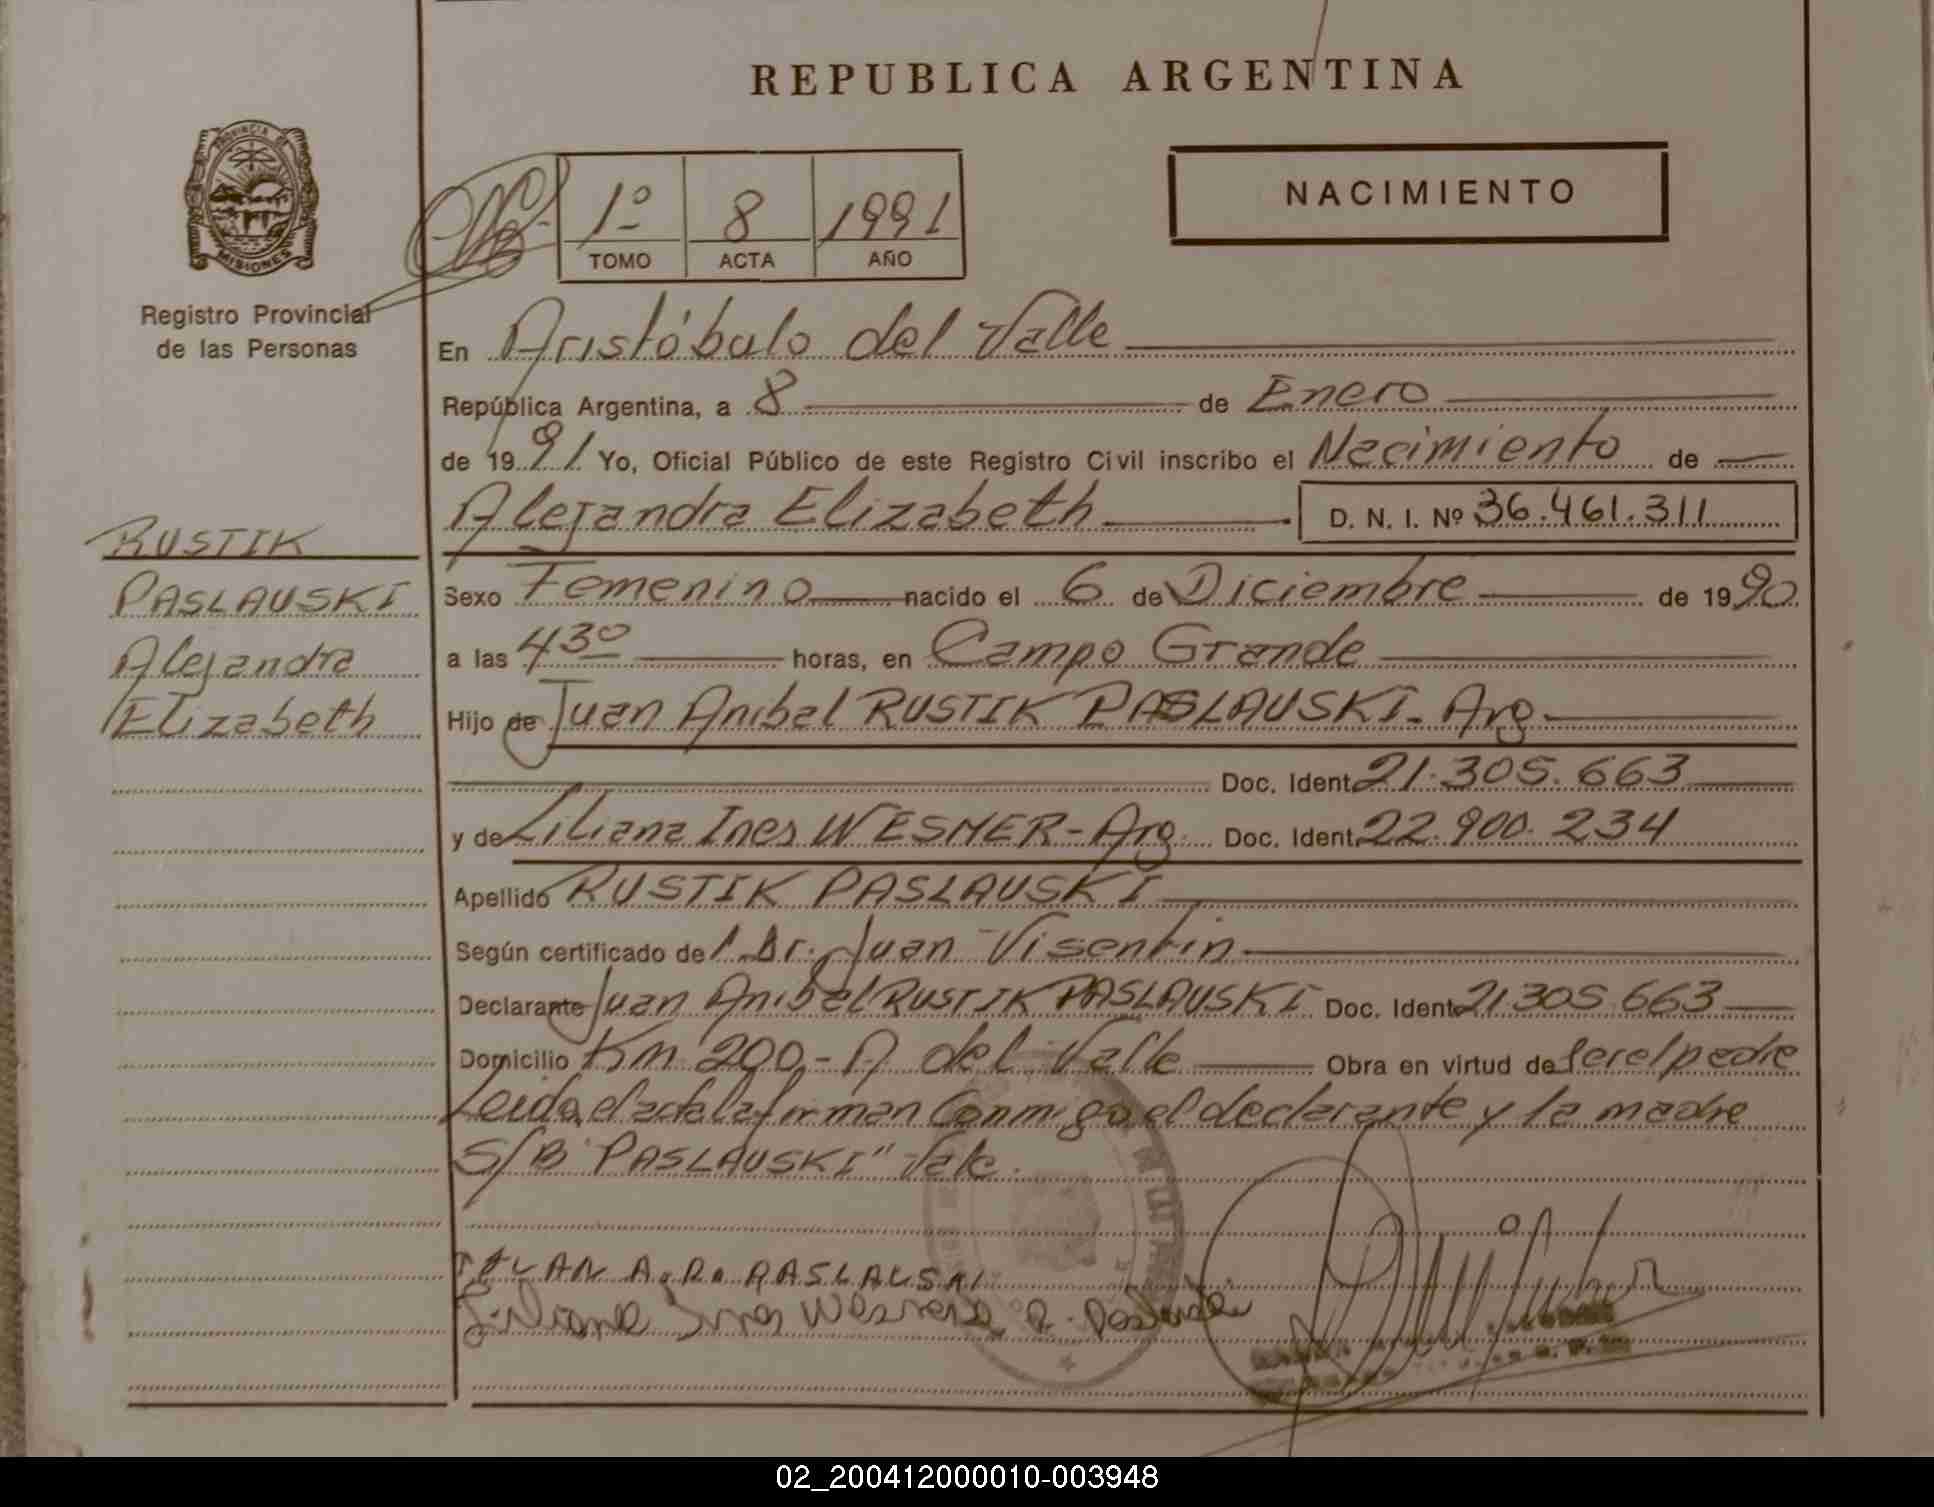 REPUBLICA ARGENTINA
PROVINCIA DE
MISIONES
Registro Provincial
de las Personas
1º 8 1991
TOMO ACTA AÑO
NACIMIENTO
En Aristóbulo del Valle
República Argentina, a 8 de Enero
de 1991 Yo, Oficial Público de este Registro Civil inscribo el Nacimiento de
Alejandra Elizabeth D. N. I. Nº 36.461.311
RUSTIK
PASLAUSKI
Alejandra
Elizabeth
Sexo Femenino nacido el 6 de Diciembre de 1990
a las 4³⁰ horas, en Campo Grande
Hijo de Juan Anibal RUSTIK PASLAUSKI- Arg.
Doc. Ident. 21.305.663
y de Liliana Ines WESNER-Arg. Doc. Ident. 22.900.234
Apellido RUSTIK PASLAUSKI
Según certificado del Dr. Juan Visentin
Declarante Juan Anibal RUSTIK PASLAUSKI Doc. Ident. 21305.663
Domicilio Km 200- A del Valle Obra en virtud de ser el padre
Leida el acta la firman Conmigo el declarante y la madre
S/B "PASLAUSKI" Vale.
JUAN A. R. PASLAUSKI
Liliana Ines
02_200412000010-003948